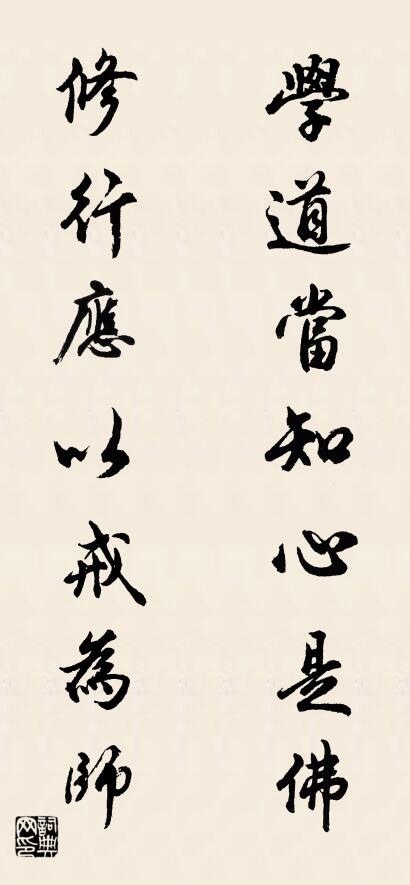 學道當知心是佛
修行應以戒為師
詞典網印